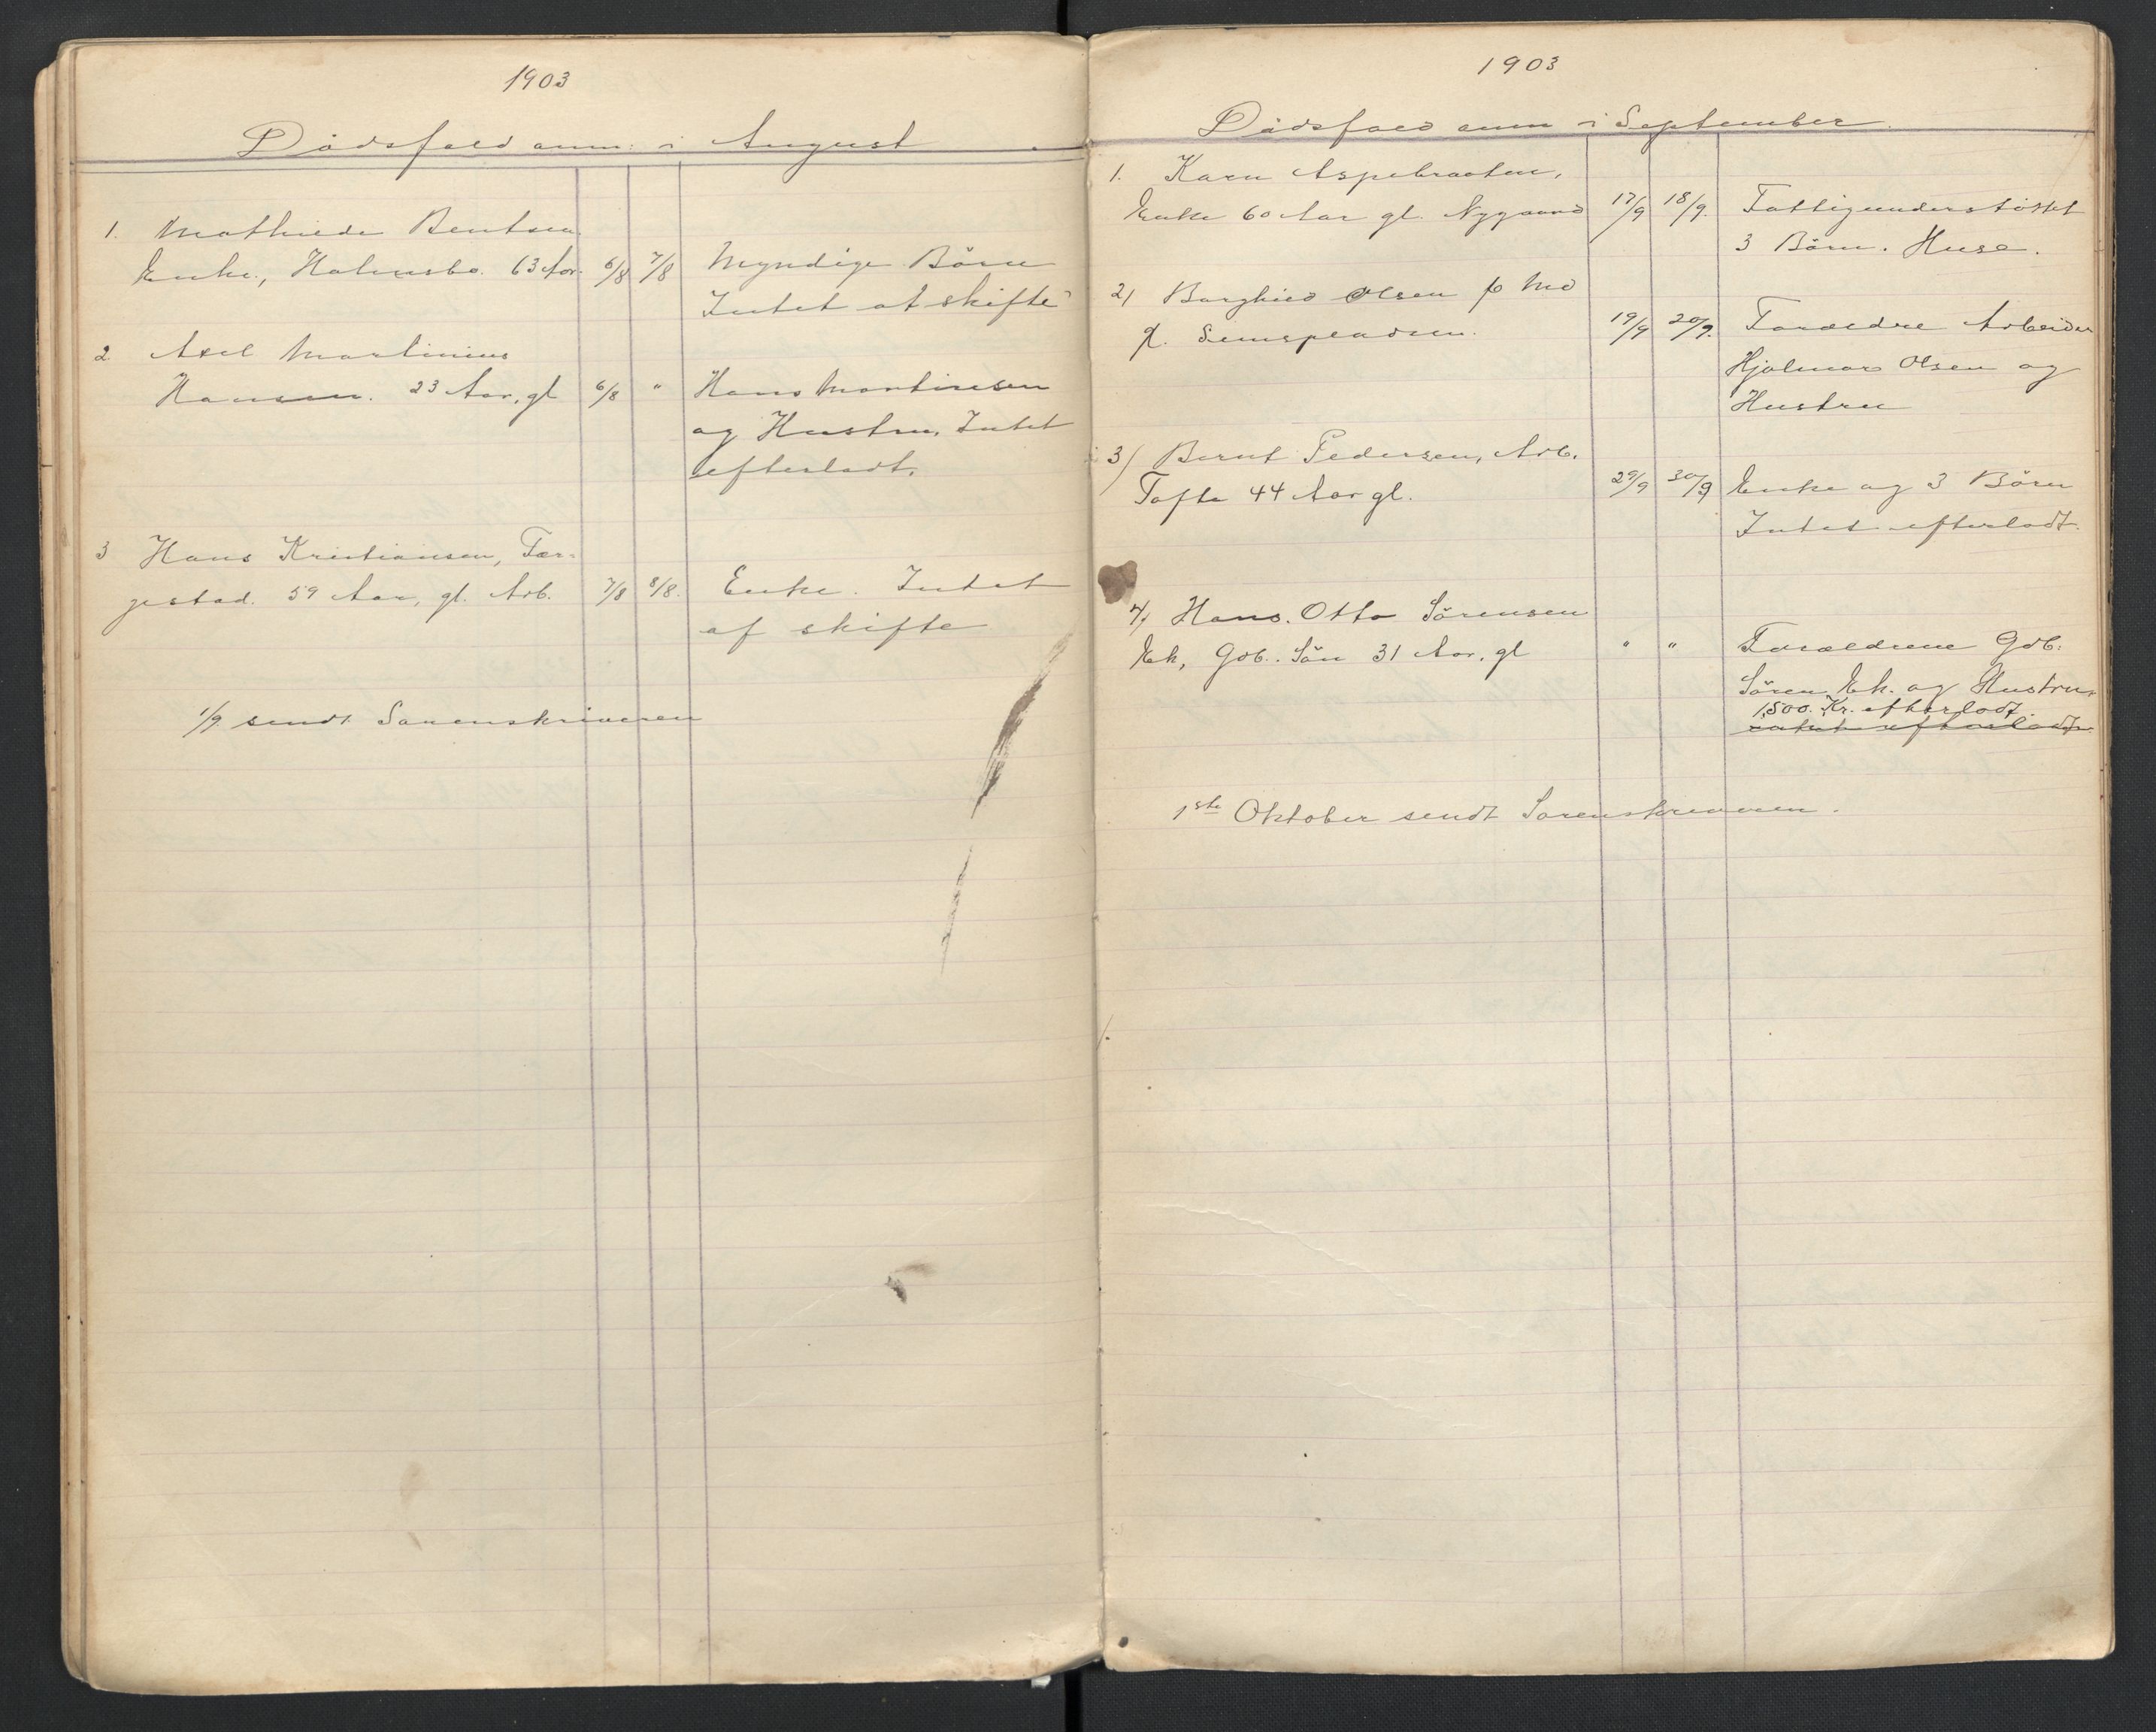 1903
Dödsfald anm: i August
1. Mathilde Bentsen
Enke, Holmsbo. 63 Aar. 6/8 7/8 Myndige Börn
Intet at skifte
2 Axel Martinius
Hansen. 23 Aar, gl 6/8 " Hans Martinsen
og Hustru. Intet
efterladt.
3 Hans Kristiansen, Fær-
gestad. 59 Aar, gl. Arb. 7/8 8/8. Enke. Intet
at skifte
1/9 sendt Sorenskriveren
1903
Dödsfald anm i September.
1. Karn Aspebraaten,
Enke 60 Aar gl. Nygaard 17/9 18/9. Fattigunderstöttet
3 Börn. Huse.
2) Borghild Olsen 6 Md
gl. 19/9 20/9. Forældre Arbeider
Hjalmar Olsen og
Hustru
3) Bernt Pedersen, Arb.
Tofte 44 Aar gl. 29/9 30/9 Enke og 3 Börn
Intet efterladt.
4) Hans. Otto Sörensen
Ek, Gdb. Sön 31 Aar, gl " " Forældrene Gdb.
Sören Ek. og Hustru,
1,500. Kr. efterladt.
intet efterladt.
1ste Oktober sendt Sorenskriveren.